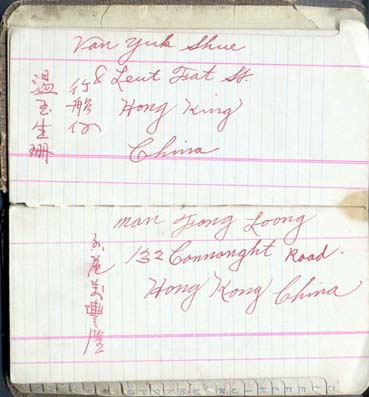 Van Yuk Shue
8 Leut Tsat St.
Hong King
China
温玉生珊
行船仔
man Tsong Loong
132 Connaught Road.
Hong Kong China